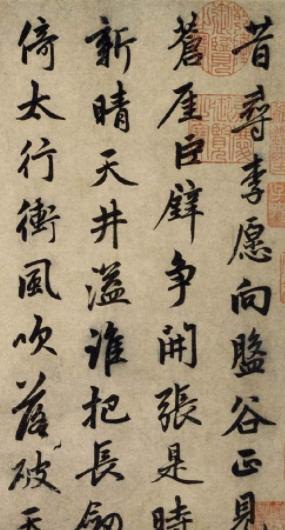 昔尋李愿向盤谷正見
蒼崖巨壁争開張是時
新晴天井溢誰把長劍
倚太行衝風吹落破天